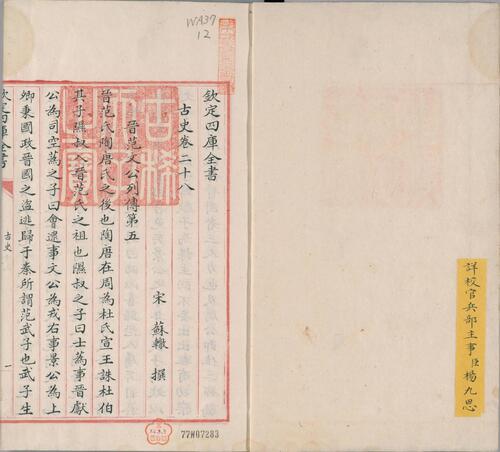 詳校官兵部主事臣楊九思
WA37
12
欽定四庫全書
古史卷二十八
宋 蘇轍 撰
晉范文公列傳第五
晉范氏陶唐氏之後也陶唐在周為杜氏宣王誅杜伯
其子隰叔入晉范氏之祖也隰叔之子曰士為事晉獻
公為司空為之子曰會還事文公為戎右事景公為上
卿秉國政晉國之盜逃歸于秦所謂范武子也武子生
欽定四庫全書
古史
一
古稀
天子
之寶
77W07283